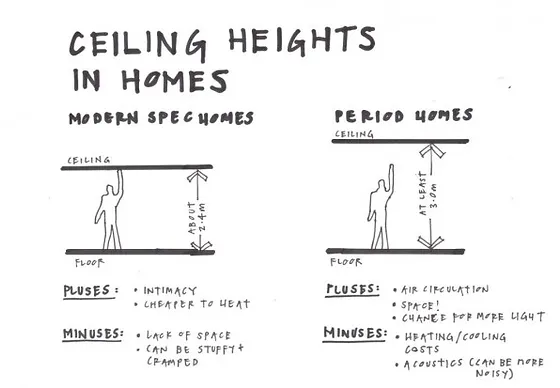 CEILING HEIGHTS
IN HOMES
MODERN SPEC HOMES
CEILING
ABOUT
2.4M
FLOOR
PLUSES:
• INTIMACY
• CHEAPER TO HEAT
MINUSES:
• LACK OF SPACE
• CAN BE STUFFY +
CRAMPED
PERIOD HOMES
CEILING
AT LEAST
3.0M
FLOOR
PLUSES:
• AIR CIRCULATION
• SPACE!
• CHANCE FOR MORE LIGHT
MINUSES:
• HEATING/COOLING
COSTS
• ACOUSTICS (CAN BE MORE
NOISY)